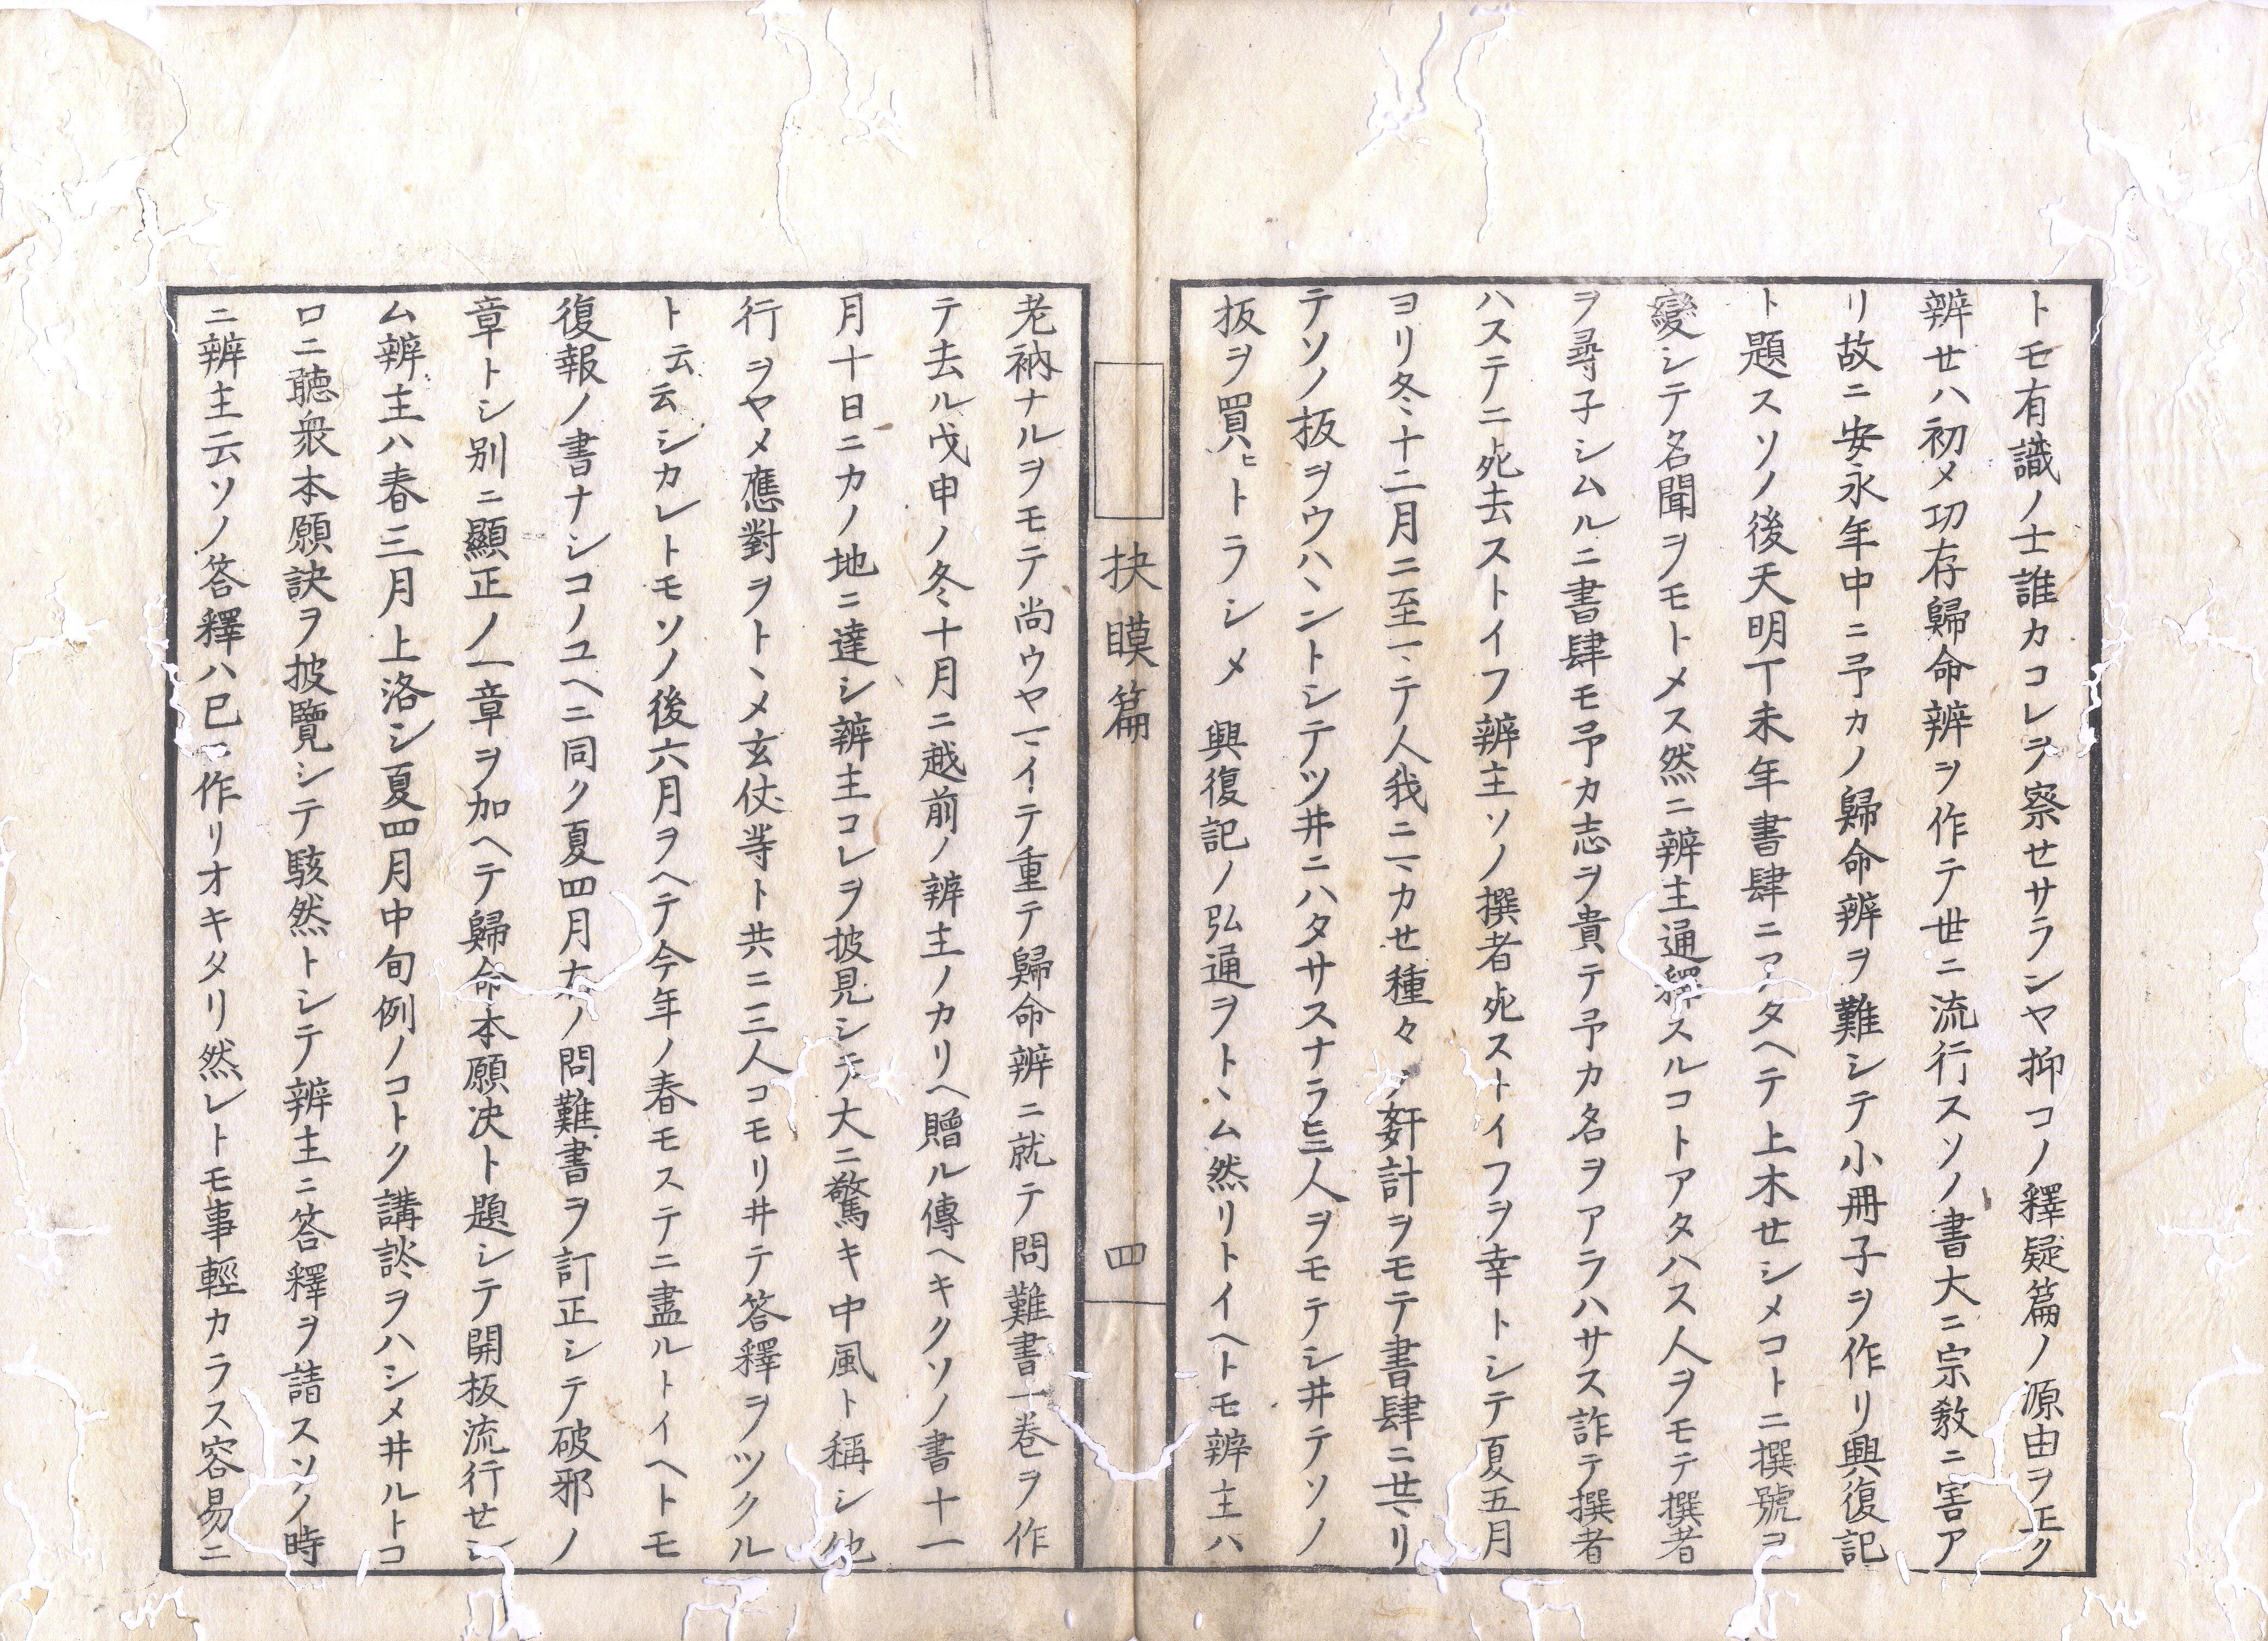 トモ有識ノ士誰カコレヲ察セサランヤ抑コノ釋疑篇ノ源由ヲ正ク
辨セハ初メ功存歸命辨ヲ作テ世ニ流行スソノ書大ニ宗教ニ害ア
リ故ニ安永年中ニ予カノ歸命辨ヲ難シテ小冊子ヲ作リ興復記
ト題スソノ後天明丁未年書肆ニアタヘテ上木セシメコトニ撰號ヲ
變シテ名聞ヲモトメス然ニ辨主通釋スルコトアタハス人ヲモテ撰者
ヲ尋子シムルニ書肆モ予カ志ヲ貴テ予カ名ヲアラハサス詐テ撰者
ハステニ死去ストイフ辨主ソノ撰者死ストイフヲ幸トシテ夏五月
ヨリ冬十二月ニ至マテ人我ニマカセ種々ノ姧計ヲモテ書肆ニセマリ
テソノ板ヲウハヽントシテツ井ニハタサスナラヒニ三人ヲモテシ井テソノ
板ヲ買ヒトラシメ興復記ノ弘通ヲトヽム然リトイヘトモ辨主ハ
抉瞙篇
四
老衲ナルヲモテ尚ウヤマイテ重テ歸命辨ニ就テ問難書十巻ヲ作
テ去ル戊申ノ冬十月ニ越前ノ辨主ノカリヘ贈ル傳ヘキクソノ書十一
月十日ニカノ地ニ達シ辨主コレヲ披見シテ大ニ驚キ中風ト稱シ他
行ヲヤメ應對ヲトヽメ玄仗等ト共ニ二三人コモリ井テ答釋ヲツクル
ト云云シカレトモソノ後六月ヲヘテ今年ノ春モステニ盡ルトイヘトモ
復報ノ書ナシコノユヘニ同ク夏四月カノ問難書ヲ訂正シテ破邪ノ
章トシ别ニ顯正ノ一章ヲ加ヘテ歸命本願决ト題シテ開板流行セシ
ム辨主ハ春三月上洛シ夏四月中旬例ノコトク講談ヲハシメ井ルトコ
ロニ聽衆本願訣ヲ披覽シテ駭然トシテ辨主ニ答釋ヲ請スソノ時
ニ辨主云ソノ答釋ハ已ニ作リオキタリ然レトモ事輕カラス容易ニ